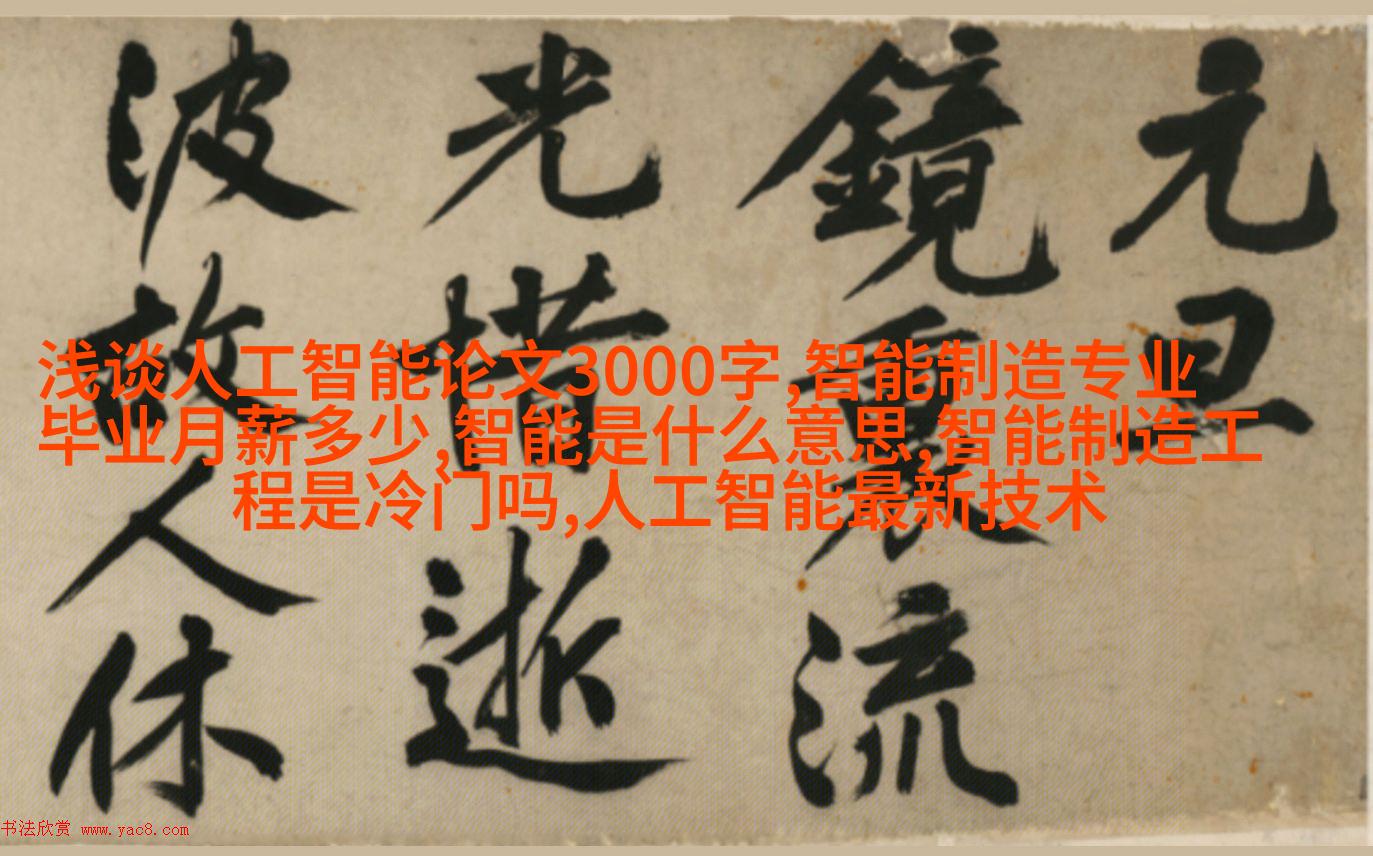 元旦
鏡裏流
光惜逝
波故人休
浅谈人工智能论文3000字,智能制造专业
毕业月薪多少,智能是什么意思,智能制造工
程是冷门吗,人工智能最新技术
书法欣赏 www.yac8.com